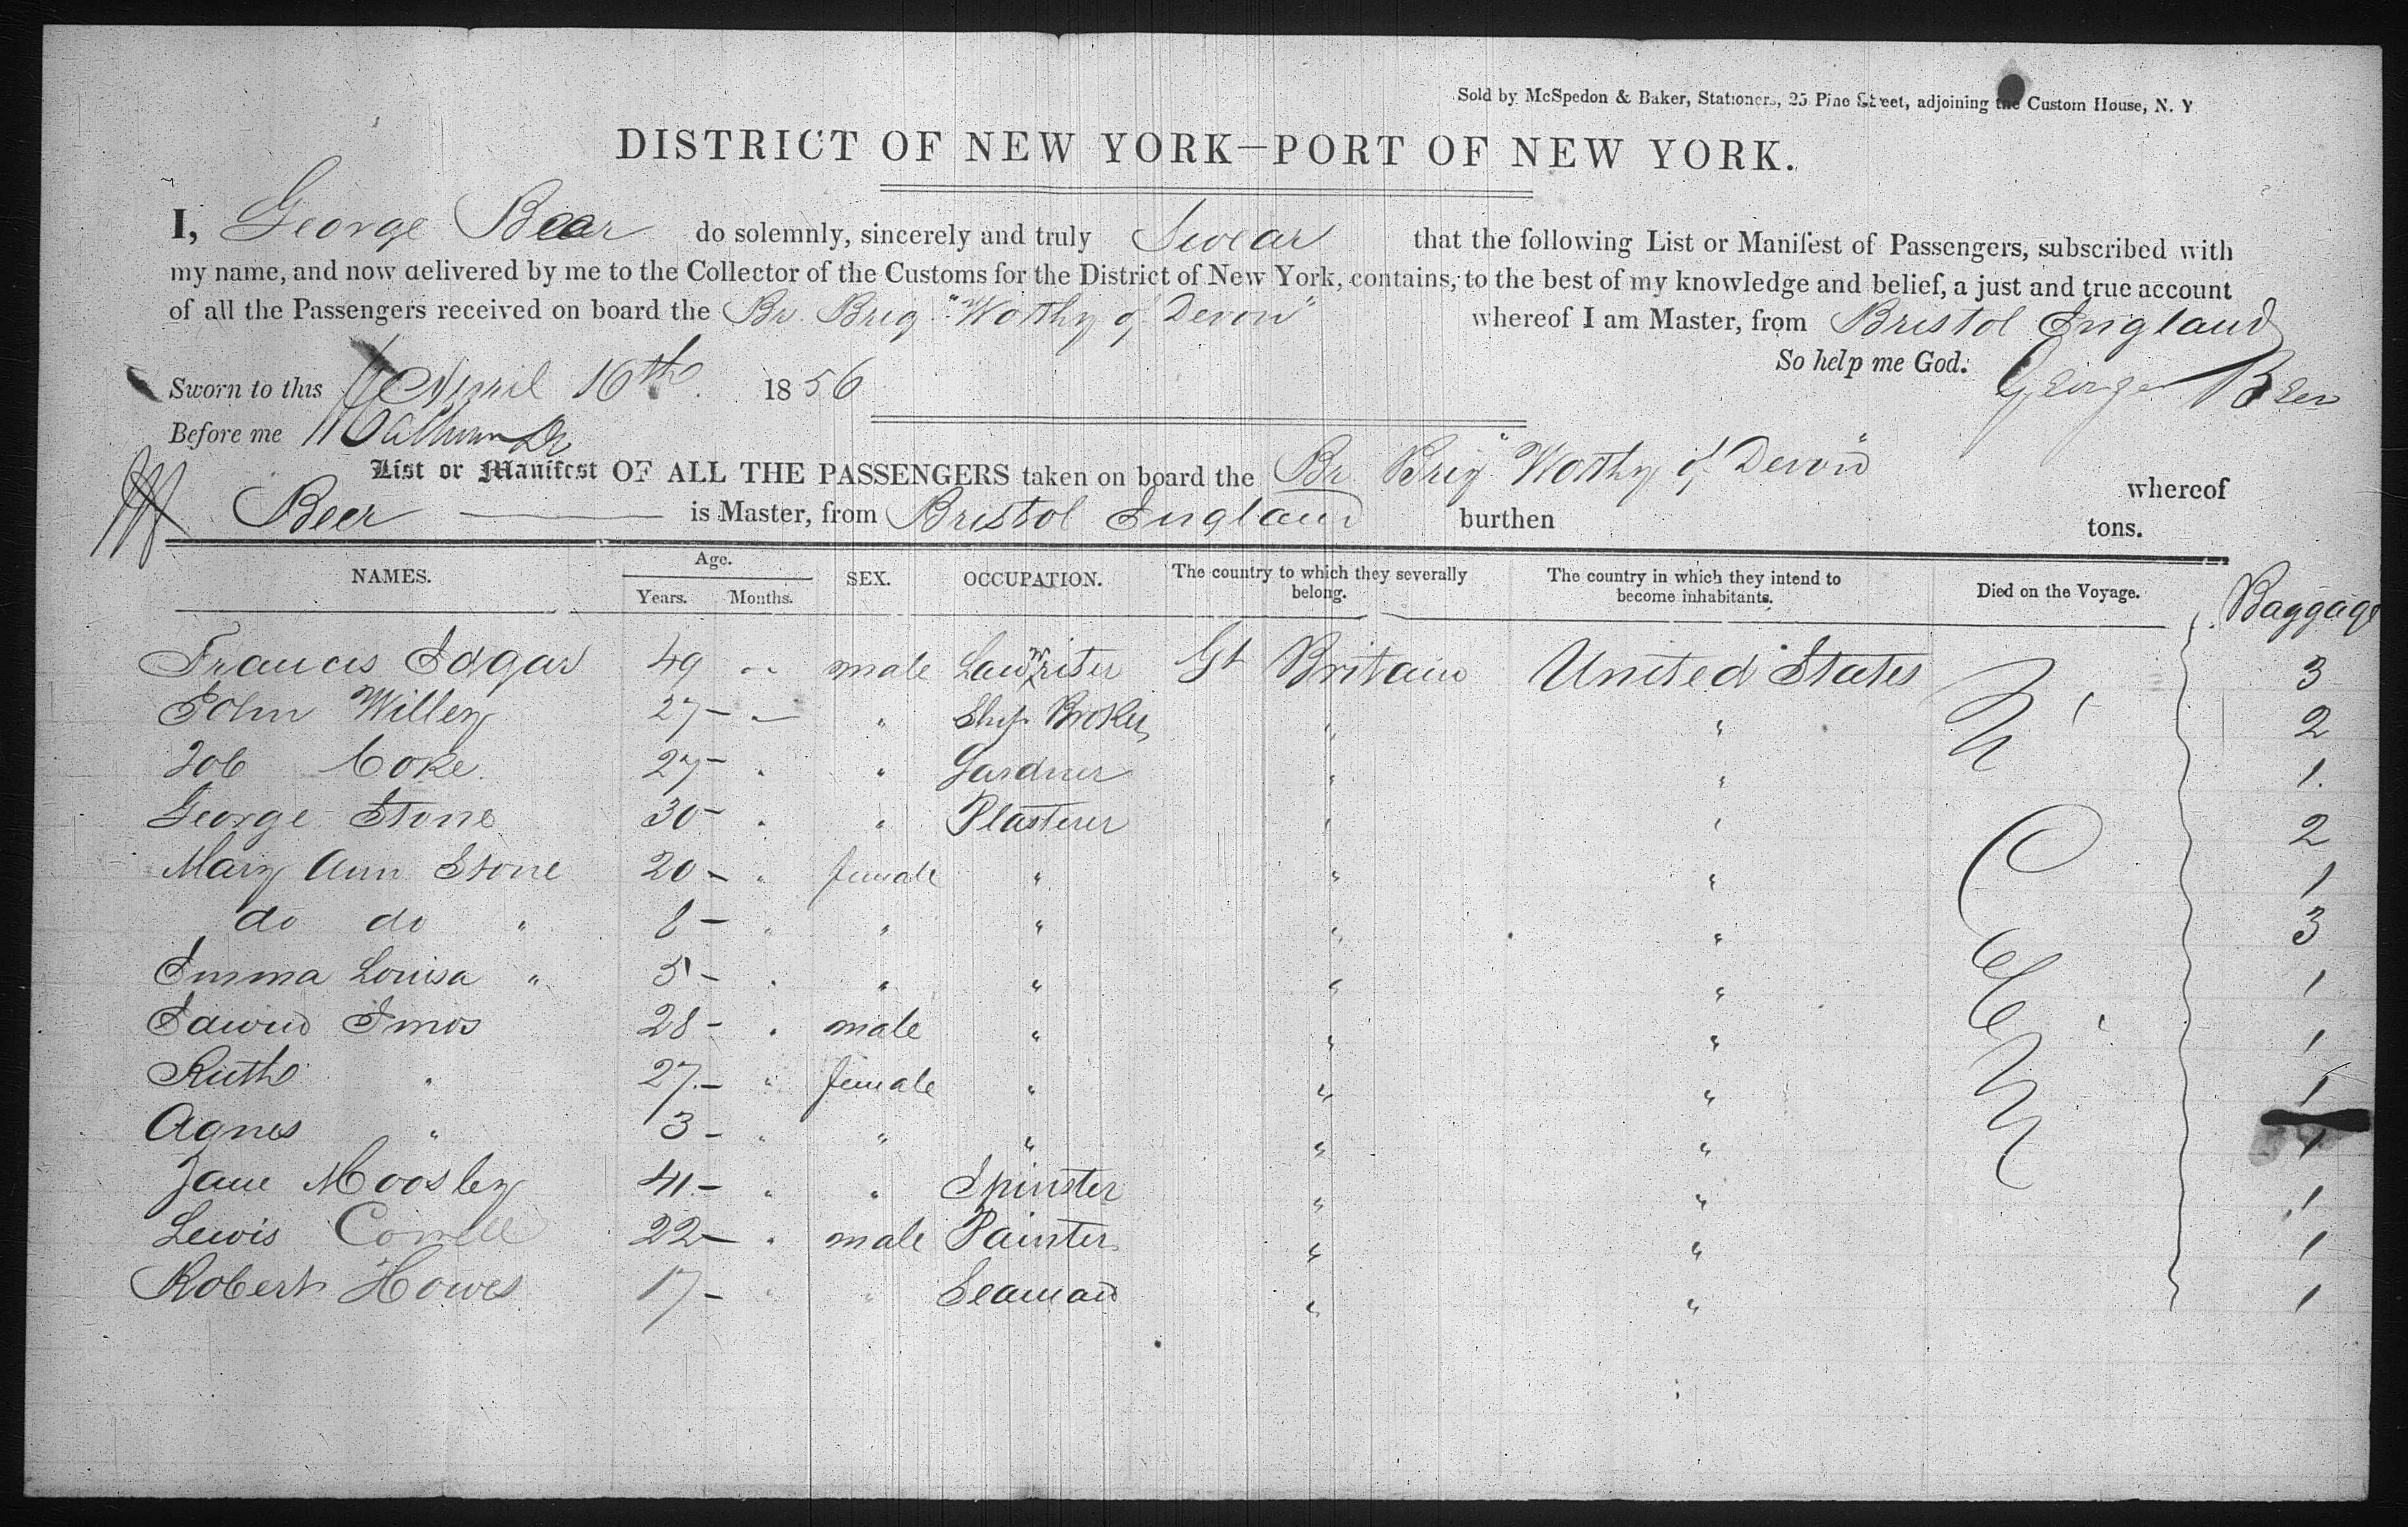 Sold by McSpedon & Baker, Stationers, 25 Pine Street, adjoining the Custom House, N. Y.
DISTRICT OF NEW YORK—PORT OF NEW YORK.
I, George Beer do solemnly, sincerely and truly Swear that the following List or Manifest of Passengers, subscribed with
my name, and now delivered by me to the Collector of the Customs for the District of New York, contains, to the best of my knowledge and belief, a just and true account
of all the Passengers received on board the Br. Brig "Worthy of Devon" whereof I am Master, from Bristol England
So help me God. George Beer
Sworn to this April 16th 1856
Before me
List or Manifest OF ALL THE PASSENGERS taken on board the Br Brig "Worthy of Devon" whereof
Beer is Master, from Bristol England burthen tons.
NAMES. Age. Years. Months. SEX. OCCUPATION. The country to which they severally belong. The country in which they intend to become inhabitants. Died on the Voyage. Baggage
Francis Edgar 49 " male Law writer Gt Britain United States 3
John Willey 27 – " Ship Broker " " 2
Job Coke 27 – " " Gardner " " 1.
George Stone 30 – " " Plasterer " " 2
Mary Ann Stone 20 – " female " " " 1
do do " 8 – " " " " " 3
Emma Louisa " 5 – " " " " " 1
Edwin 28 – " male " " " 1
Ruth " 27 – " female " " " 1
Agnes " 3 – " " " " " 1
Jane Moosley 41 – " " Spinster " " 1
Lewis 22 – " male Painter " " 1
Robert Howes 17 – " " Seaman " " 1